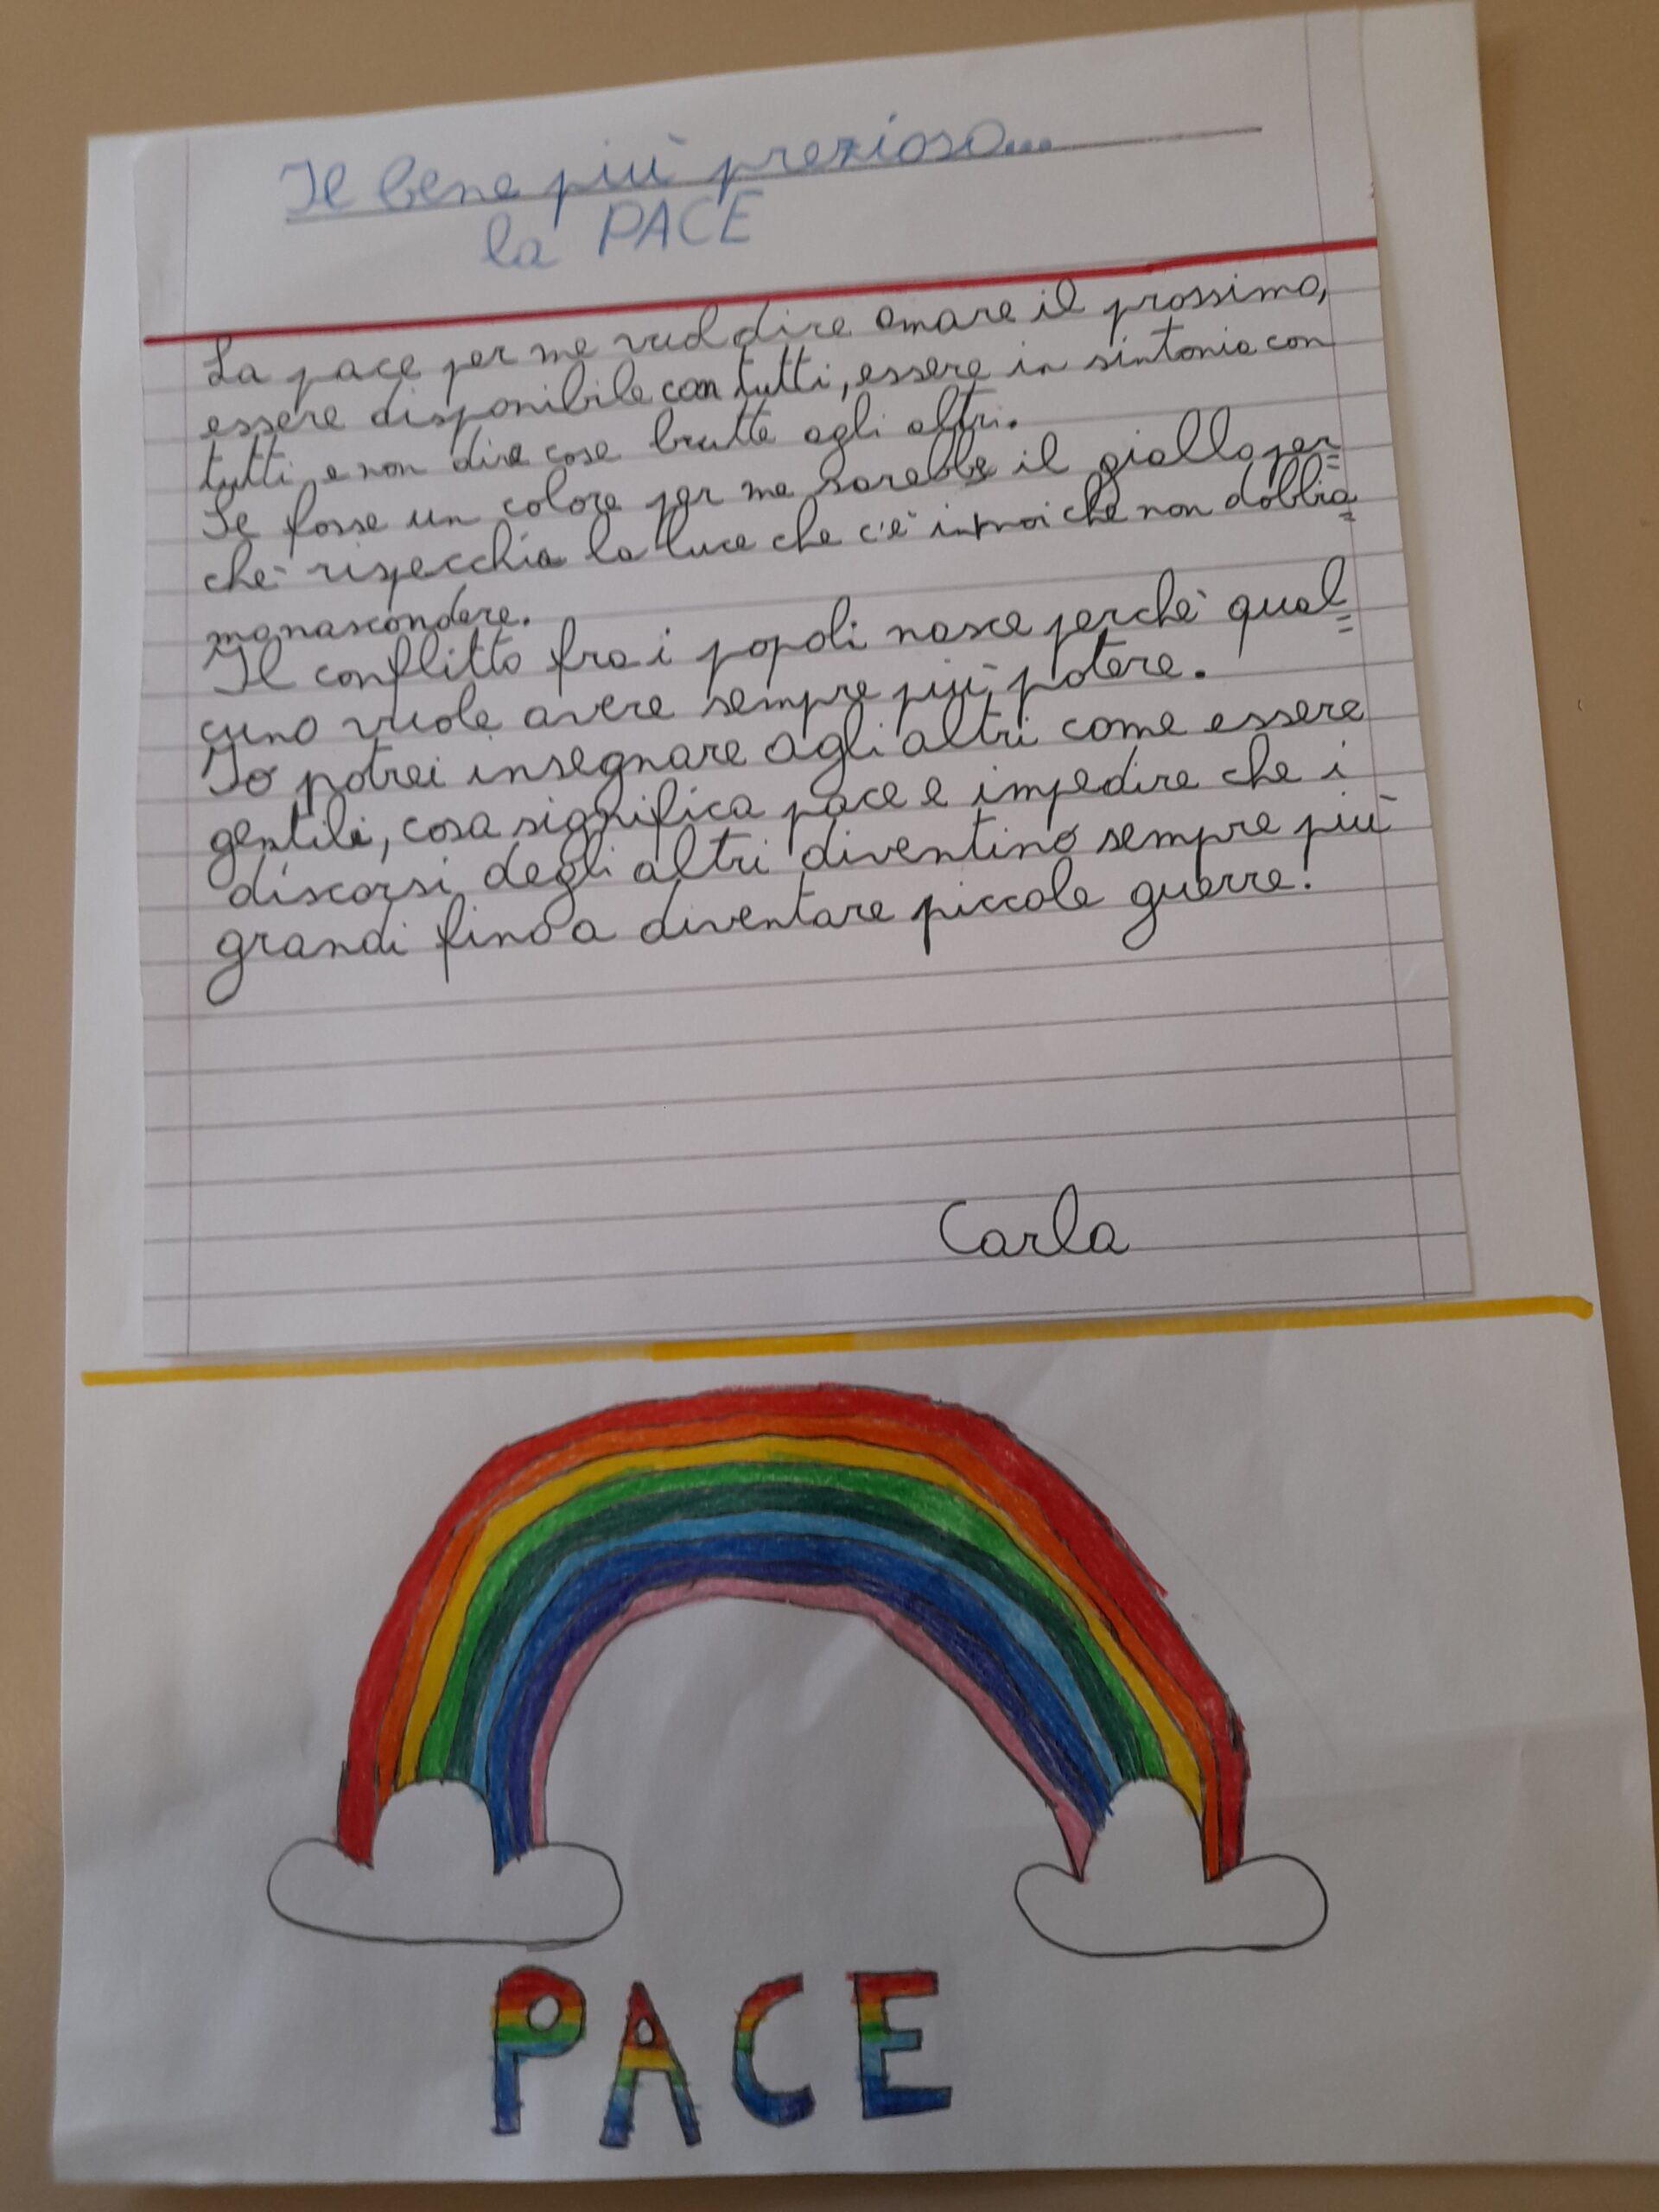 Il bene più prezioso...
la PACE
La pace per me vuol dire amare il prossimo,
essere disponibile con tutti, essere in sintonia con
tutti e non dire cose brutte agli altri.
Se fosse un colore per me sarebbe il giallo per=
chè rispecchia la luce che c'è in noi che non dobbia=
mo nascondere.
Il conflitto fra i popoli nasce perchè qual=
cuno vuole avere sempre più potere.
Io potrei insegnare agli altri come essere
gentili, cosa significa pace e impedire che i
discorsi degli altri diventino sempre più
grandi fino a diventare piccole guerre!
Carla
PACE